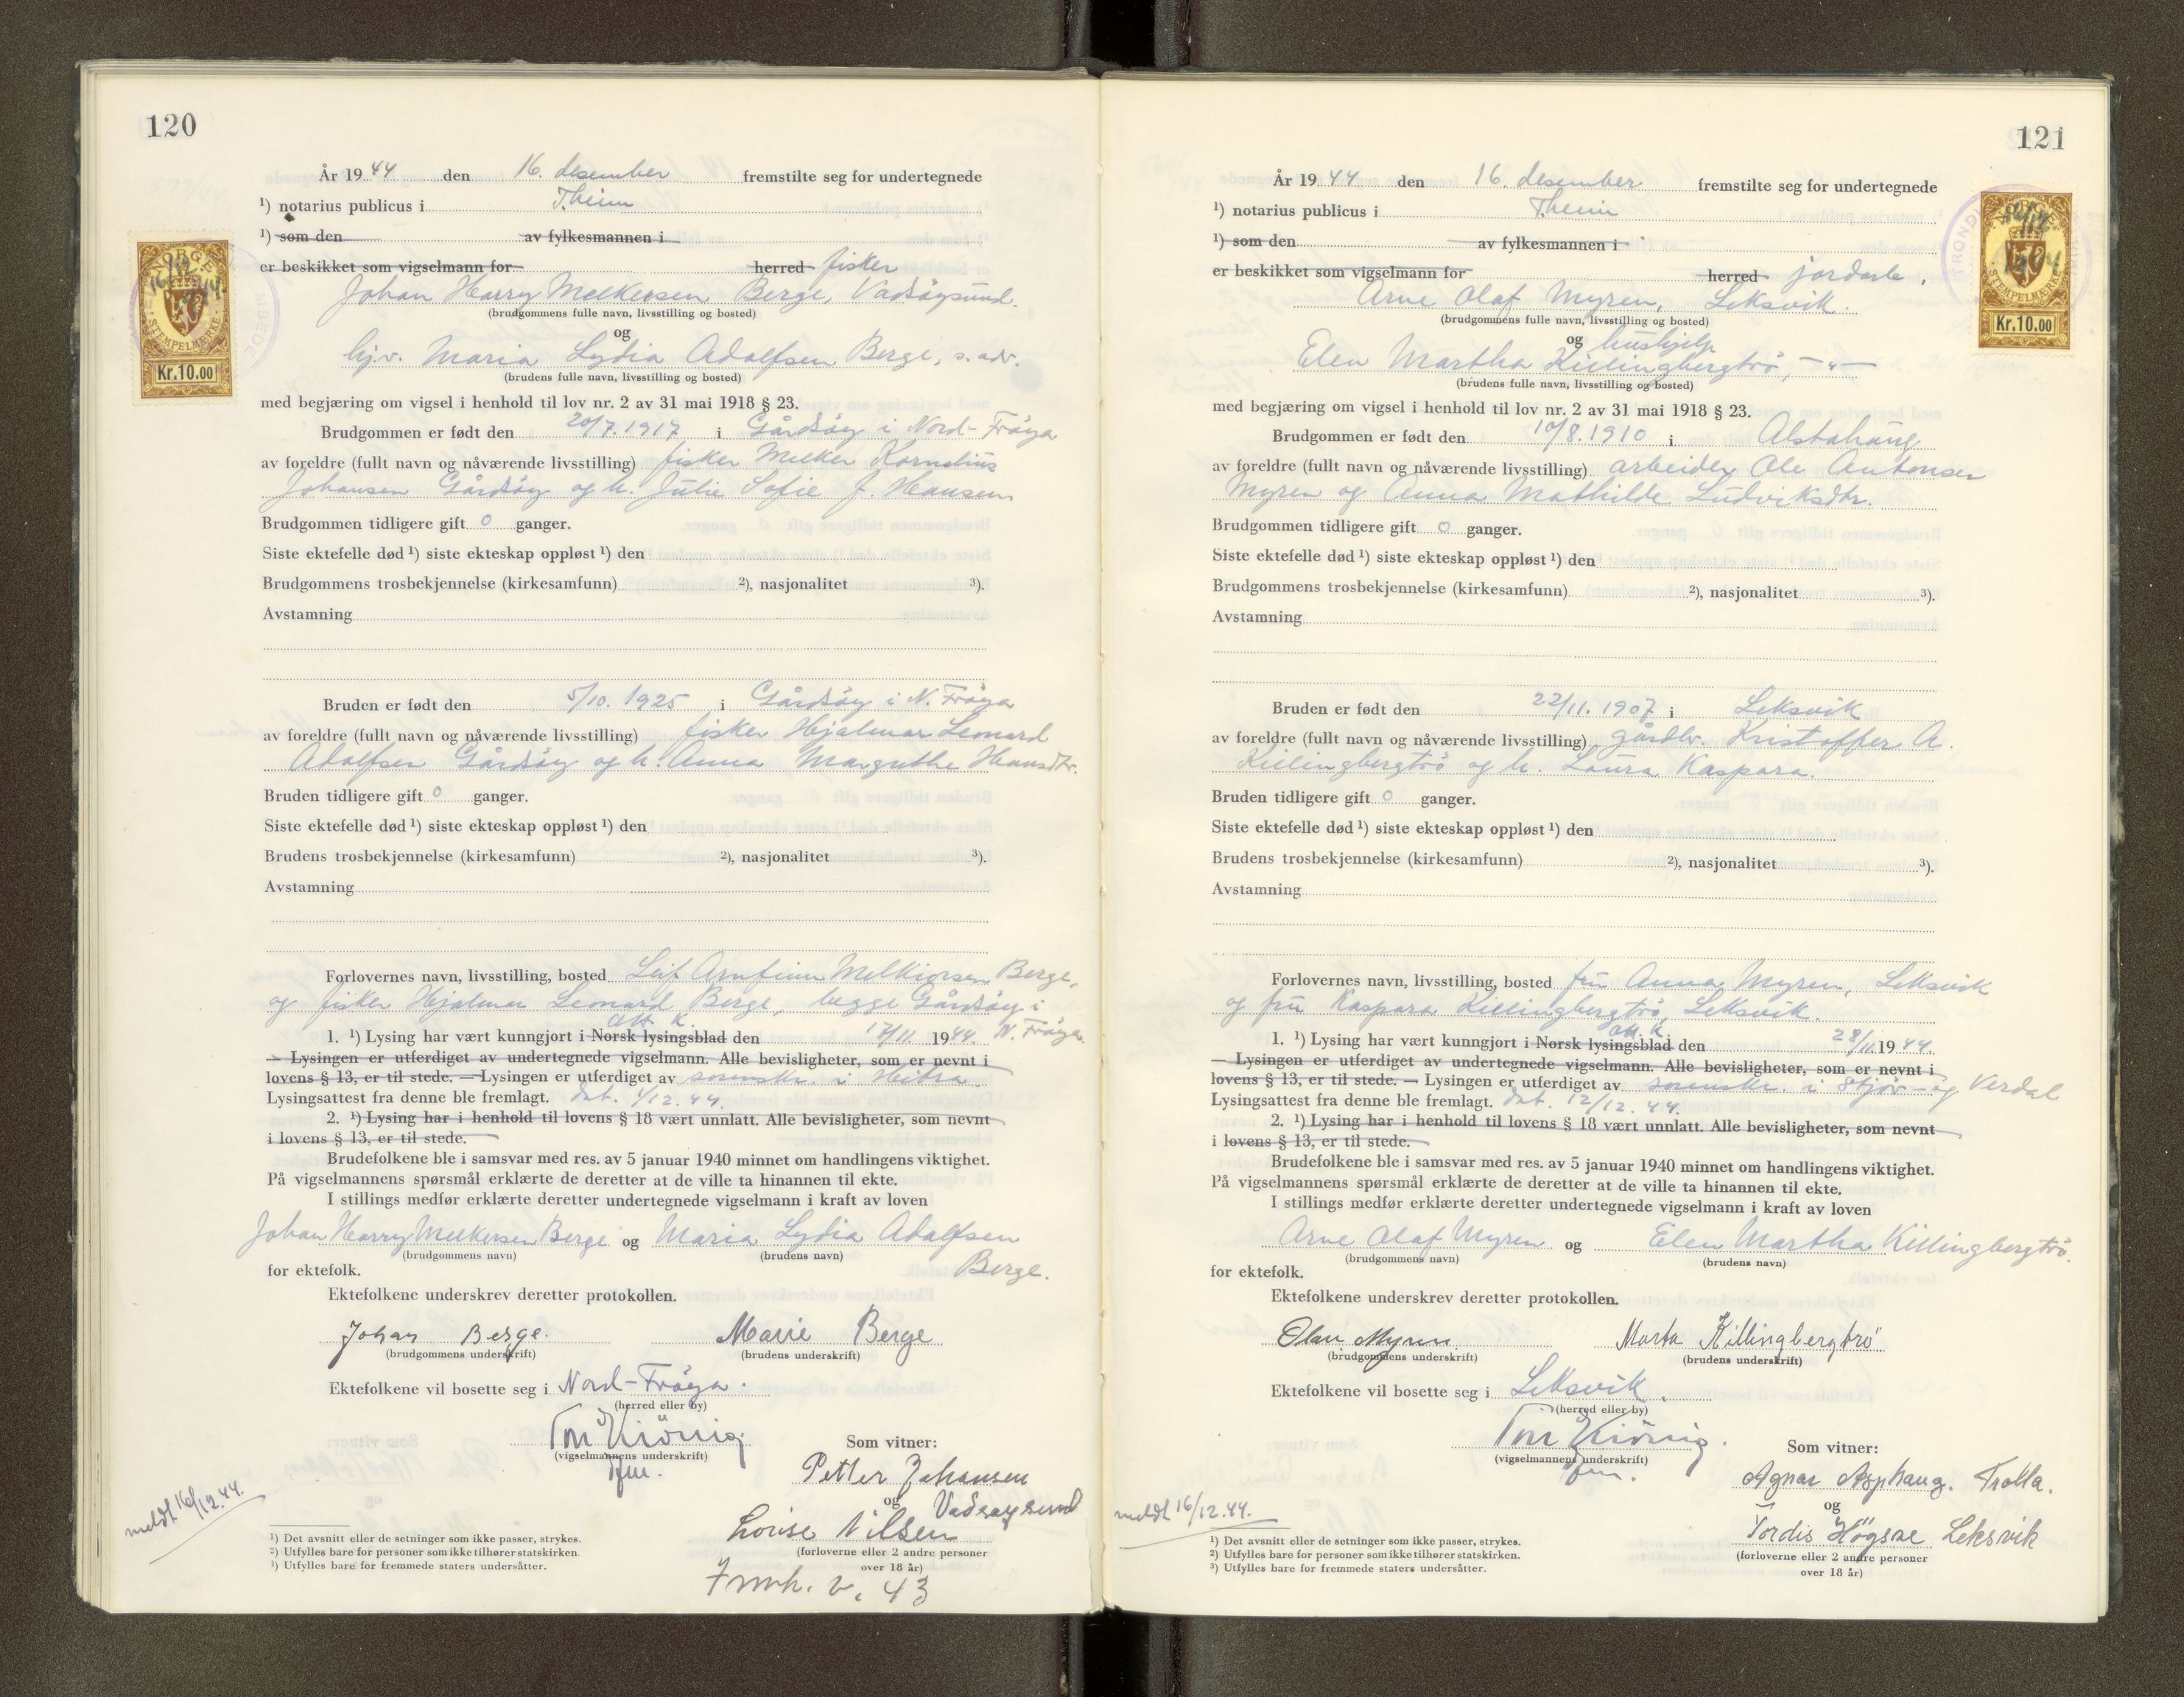 120
År 1944 den 16. desember fremstilte seg for undertegnede
¹) notarius publicus i T.heim
¹) som den av fylkesmannen i
er beskikket som vigselmann for herred fisker
Johan Harry Melkersen Berge, Vadsöysund.
(brudgommens fulle navn, livsstilling og bosted)
og
hj.v. Maria Lydia Adolfsen Berge, s. adr.
(brudens fulle navn, livsstilling og bosted)
med begjæring om vigsel i henhold til lov nr. 2 av 31 mai 1918 § 23.
Brudgommen er født den 20/7. 1917 i Gårdsöy i Nord-Fröya
av foreldre (fullt navn og nåværende livsstilling) fisker Melker Kornelius
Johansen Gårdsöy og h. Julie Sofie f. Hansen
Brudgommen tidligere gift 0 ganger.
Siste ektefelle død ¹) siste ekteskap oppløst ¹) den
Brudgommens trosbekjennelse (kirkesamfunn) ²), nasjonalitet ³).
Avstamning
Bruden er født den 5/10. 1925 i Gårdsöy i N. Fröya
av foreldre (fullt navn og nåværende livsstilling) fisker Hjalmar Leonard
Adolfsen Gårdsöy og h. Anna Margrethe Hansdtr.
Bruden tidligere gift 0 ganger.
Siste ektefelle død ¹) siste ekteskap oppløst ¹) den
Brudens trosbekjennelse (kirkesamfunn) ²), nasjonalitet ³).
Avstamning
Forlovernes navn, livsstilling, bosted Leif Arnfinn Melkiorsen Berge,
og fisker Hjalmar Leonard Berge, begge Gårdsöy i
N. Fröya.
att. k.
1. ¹) Lysing har vært kunngjort i Norsk lysingsblad den 17/11. 1944.
— Lysingen er utferdiget av undertegnede vigselmann. Alle bevisligheter, som er nevnt i
lovens § 13, er til stede. — Lysingen er utferdiget av sorenskr. i Hitra
Lysingsattest fra denne ble fremlagt. dat. 1/12. 44.
2. ¹) Lysing har i henhold til lovens § 18 vært unnlatt. Alle bevisligheter, som nevnt
i lovens § 13, er til stede.
Brudefolkene ble i samsvar med res. av 5 januar 1940 minnet om handlingens viktighet.
På vigselmannens spørsmål erklærte de deretter at de ville ta hinannen til ekte.
I stillings medfør erklærte deretter undertegnede vigselmann i kraft av loven
Johan Harry Melkersen Berge og Maria Lydia Adolfsen
Berge.
(brudgommens navn) (brudens navn)
for ektefolk.
Ektefolkene underskrev deretter protokollen.
Johan Berge. Marie Berge
(brudgommens underskrift) (brudens underskrift)
Ektefolkene vil bosette seg i Nord-Fröya.
(herred eller by)
(vigselmannens underskrift)
Som vitner:
Petter Johansen
og Vadsøysund
Lovise Nilsen
(forloverne eller 2 andre personer
over 18 år)
meldt 16/12.44.
¹) Det avsnitt eller de setninger som ikke passer, strykes.
²) Utfylles bare for personer som ikke tilhører statskirken.
³) Utfylles bare for fremmede staters undersåtter.
NORGE
STEMPELMÆRKE
Kr.10.00
121
År 1944 den 16. desember fremstilte seg for undertegnede
¹) notarius publicus i T.heim
¹) som den av fylkesmannen i
er beskikket som vigselmann for herred jordarb.,
Arne Olaf Myren, Leksvik.
(brudgommens fulle navn, livsstilling og bosted)
og hushjelp
Elen Martha Killingbergtrö, —"—
(brudens fulle navn, livsstilling og bosted)
med begjæring om vigsel i henhold til lov nr. 2 av 31 mai 1918 § 23.
Brudgommen er født den 10/8. 1910 i Alstahaug
av foreldre (fullt navn og nåværende livsstilling) arbeider Ole Antonsen
Myren og Anna Mathilde Ludviksdtr.
Brudgommen tidligere gift 0 ganger.
Siste ektefelle død ¹) siste ekteskap oppløst ¹) den
Brudgommens trosbekjennelse (kirkesamfunn) ²), nasjonalitet ³).
Avstamning
Bruden er født den 22/11. 1907 i Leksvik
av foreldre (fullt navn og nåværende livsstilling) gårdbr. Kristoffer A.
Killingbergtrö og h. Laura Kaspara.
Bruden tidligere gift 0 ganger.
Siste ektefelle død ¹) siste ekteskap oppløst ¹) den
Brudens trosbekjennelse (kirkesamfunn) ²), nasjonalitet ³).
Avstamning
Forlovernes navn, livsstilling, bosted fru Anna Myren, Leksvik
og fru Kaspara Killingbergtrö, Leksvik.
att. k.
1. ¹) Lysing har vært kunngjort i Norsk lysingsblad den 28/11. 1944.
— Lysingen er utferdiget av undertegnede vigselmann. Alle bevisligheter, som er nevnt i
lovens § 13, er til stede. — Lysingen er utferdiget av sorenskr. i Stjör- og Verdal
Lysingsattest fra denne ble fremlagt. dat. 12/12. 44.
2. ¹) Lysing har i henhold til lovens § 18 vært unnlatt. Alle bevisligheter, som nevnt
i lovens § 13, er til stede.
Brudefolkene ble i samsvar med res. av 5 januar 1940 minnet om handlingens viktighet.
På vigselmannens spørsmål erklærte de deretter at de ville ta hinannen til ekte.
I stillings medfør erklærte deretter undertegnede vigselmann i kraft av loven
Arne Olaf Myren og Elen Martha Killingbergtrö.
(brudgommens navn) (brudens navn)
for ektefolk.
Ektefolkene underskrev deretter protokollen.
Olav Myren Marta Killingbergtrö
(brudgommens underskrift) (brudens underskrift)
Ektefolkene vil bosette seg i Leksvik.
(herred eller by)
(vigselmannens underskrift)
Som vitner:
Agnar Asphaug. Trolla.
og
Tordis Högsæ Leksvik
(forloverne eller 2 andre personer
over 18 år)
meldt 16/12.44.
¹) Det avsnitt eller de setninger som ikke passer, strykes.
²) Utfylles bare for personer som ikke tilhører statskirken.
³) Utfylles bare for fremmede staters undersåtter.
NORGE
STEMPELMÆRKE
Kr.10.00